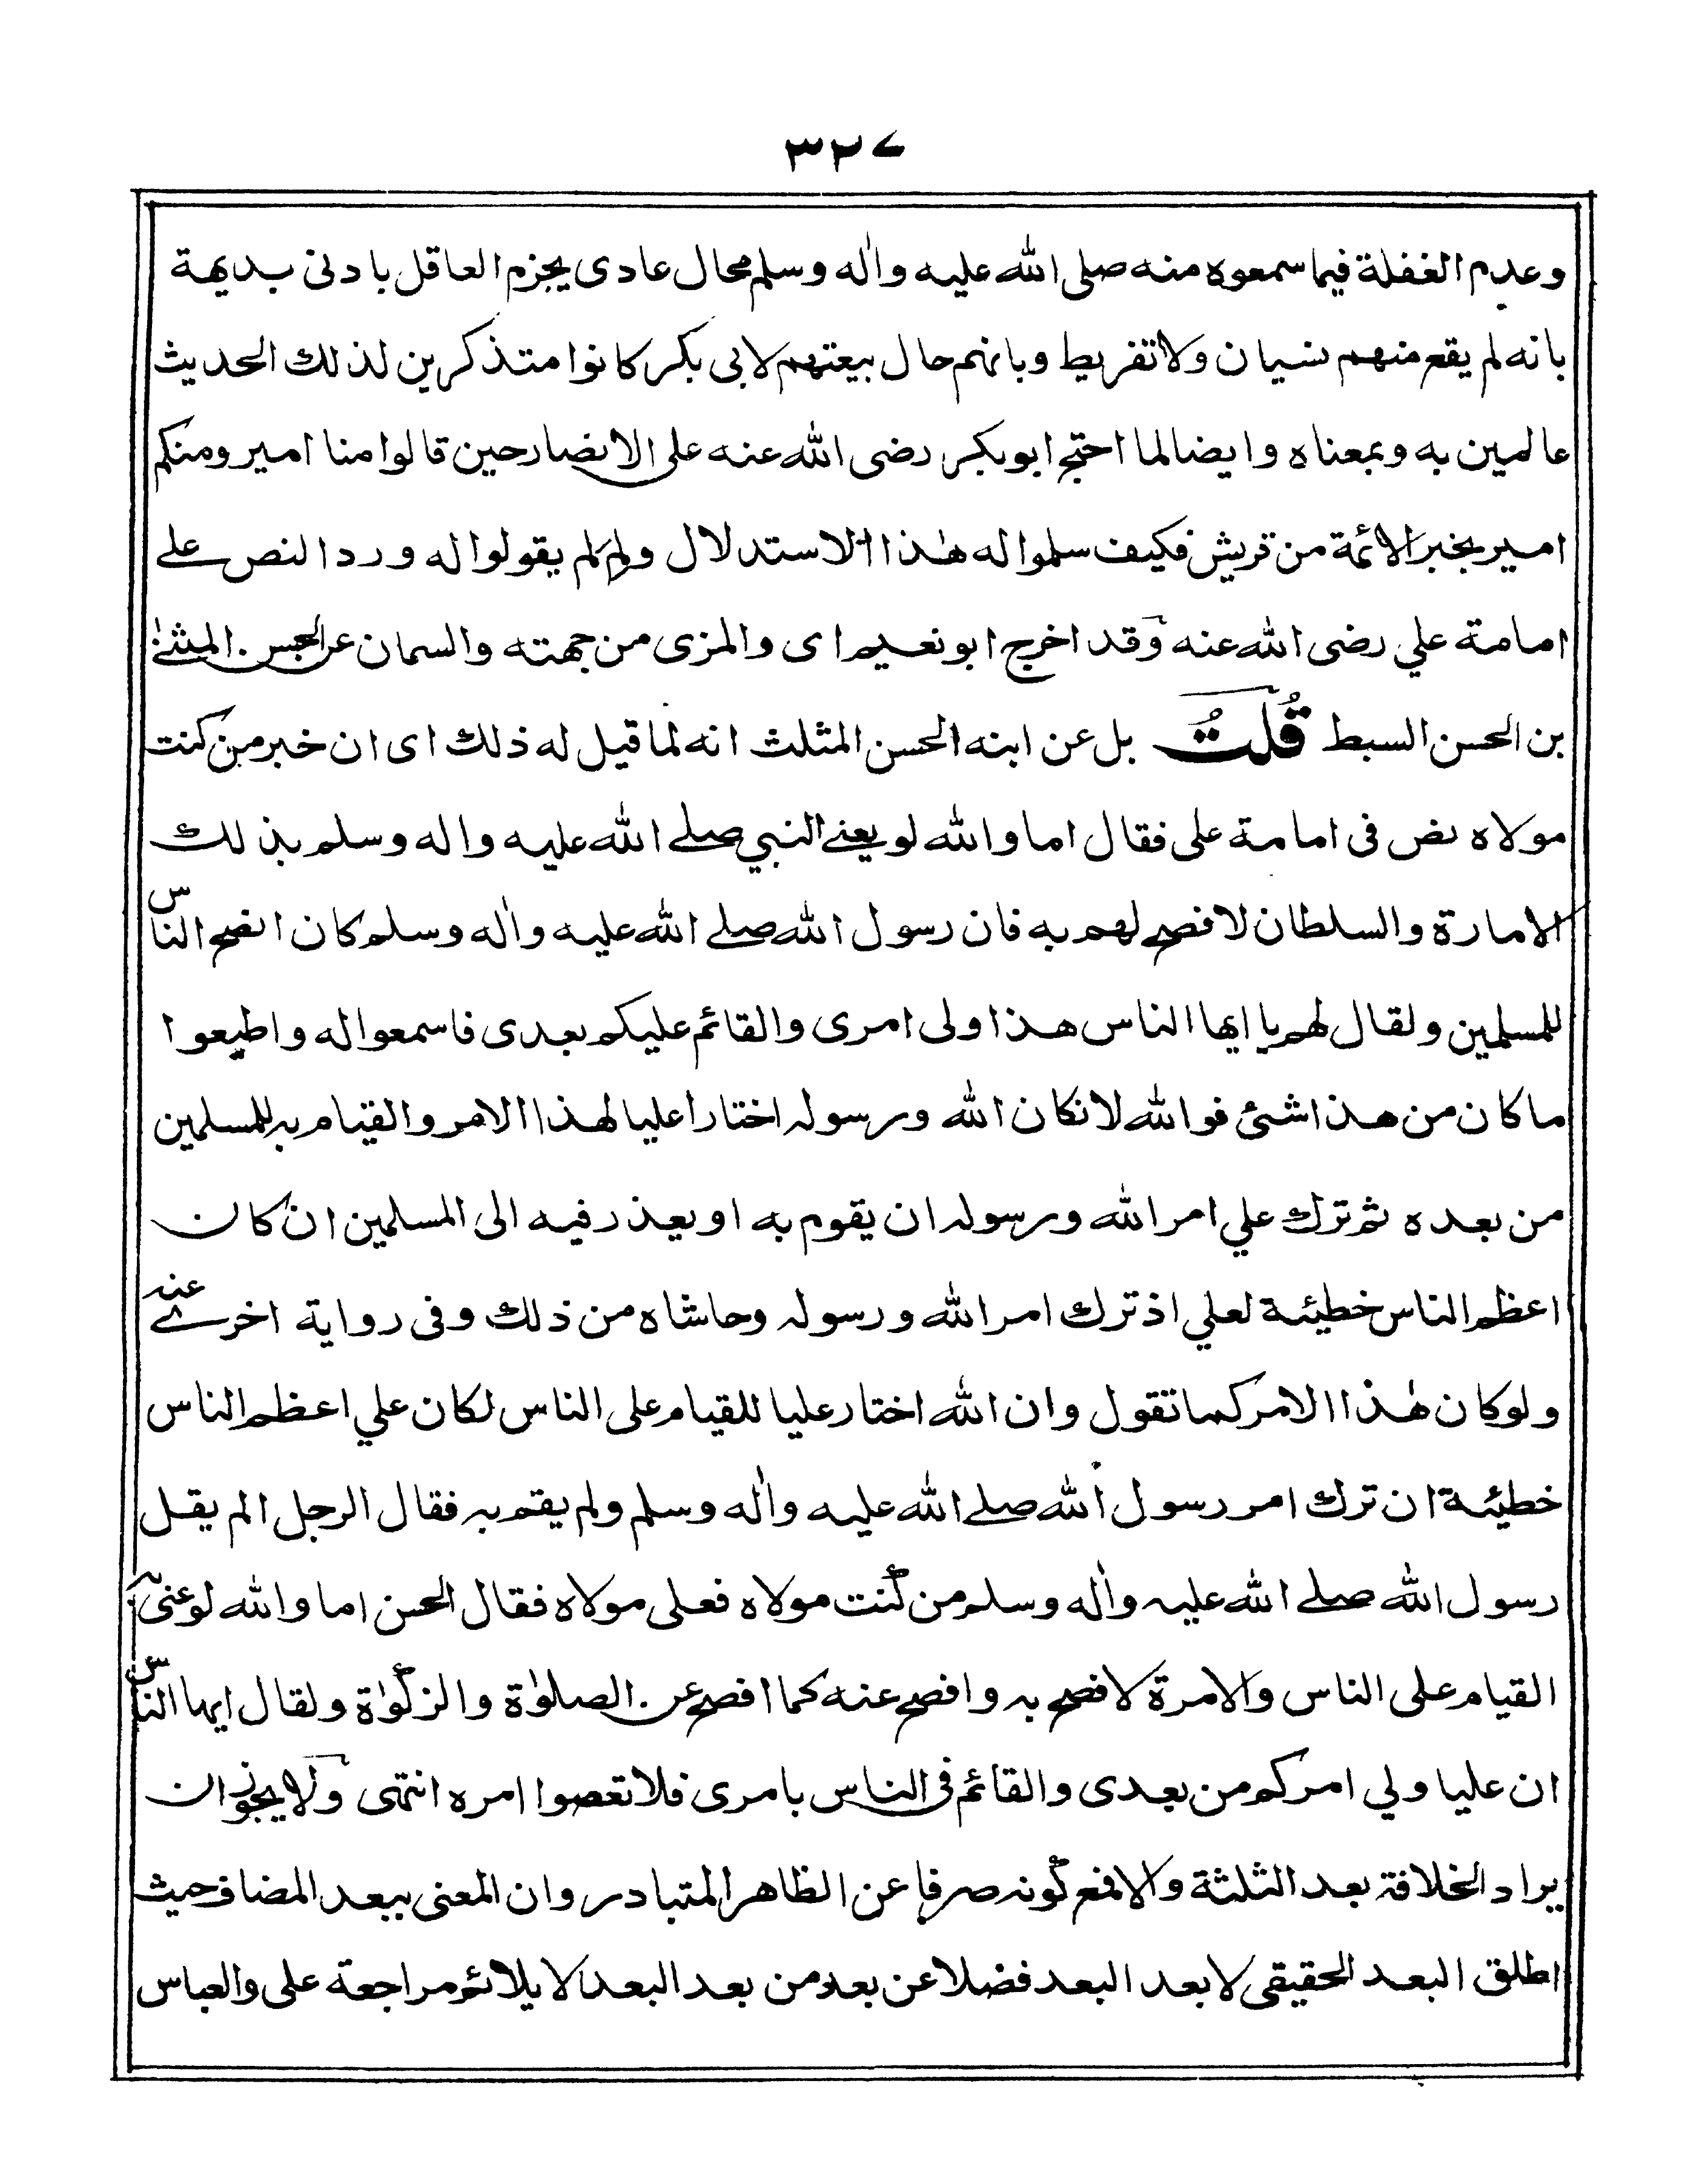 ٣٢٧
وعدم الغفلة فيما سمعوه منه صلى الله عليه واٰله وسلم محال عادى يجزم العاقل بادنى بديهة
بانه لم يقع منهم نسيان ولا تفريط وبانهم حال بيعتهم لابى بكر كانوا متذكرين لذلك الحديث
عالمين به وبمعناه وايضا لما احتج ابوبكر رضى الله عنه على الانصار حين قالوا منا امير ومنكم
امير بخبر الائمة من قريش فكيف سلموا له هٰذا الاستدلال ولم لم يقولوا له ورد النص على
امامة علي رضى الله عنه وقد اخرج ابو نعيم اى والمزى من جهته والسمان عن الحسن المثنىٰ
بن الحسن السبط قُلتُ بل عن ابنه الحسن المثلث انه لما قيل له ذلك اى ان خبر من كنت
مولاه نص فى امامة على فقال اما والله لو يعنى النبي صلى الله عليه واله وسلم بذلك
الامارة والسلطان لافصح لهم به فان رسول الله صلى الله عليه واٰله وسلم كان انصح الناس
للمسلمين ولقال لهم يا ايها الناس هذا ولى امرى والقائم عليكم بعدى فاسمعوا له واطيعوا
ما كان من هذا شئ فوالله لان كان الله ورسوله اختارا عليا لهذا الامر والقيام به للمسلمين
من بعده ثم ترك علي امر الله ورسوله ان يقوم به او يعذر فيه الى المسلمين ان كان
اعظم الناس خطيئة لعلي اذ ترك امر الله ورسوله وحاشاه من ذلك وفى رواية اخرى عنه
ولو كان هٰذا الامر كما تقول وان الله اختار عليا للقيام على الناس لكان علي اعظم الناس
خطيئة ان ترك امر رسول الله صلى الله عليه واٰله وسلم ولم يقم به فقال الرجل الم يقل
رسول الله صلى الله عليه واٰله وسلم من كنت مولاه فعلى مولاه فقال الحسن اما والله لو عنى به
القيام على الناس والامرة لافصح به وافصح عنه كما افصح عن الصلوٰة والزكوٰة ولقال ايها الناس
ان عليا ولي امركم من بعدى والقائم فى الناس بامرى فلا تعصوا امره انتهى ولا يجوز ان
يراد الخلافة بعد الثلثة والا فمع كونه صرفا عن الظاهر المتبادر وان المعنى ببعد المضاف حيث
اطلق البعد الحقيقى لا بعد البعد فضلا عن بعد من بعد البعد لا يلائم مراجعة على والعباس